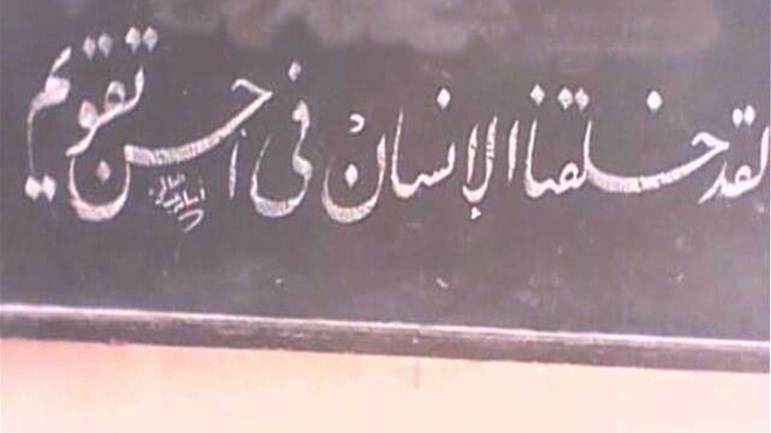 لقد خلقنا الإنسان في أحسن تقويم